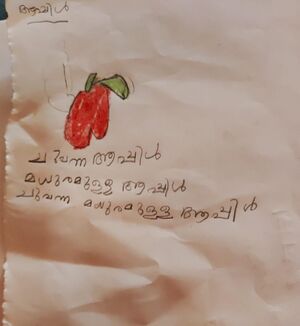 ആപ്പിൾ
ചുവന്ന ആപ്പിൾ
മധുരമുള്ള ആപ്പിൾ
ചുവന്ന മധുരമുള്ള ആപ്പിൾ